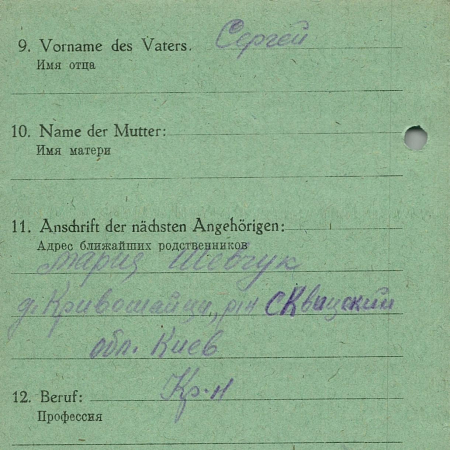 9. Vorname des Vaters. Сергей
Имя отца
10. Name der Mutter:
Имя матери
11. Anschrift der nächsten Angehörigen:
Адрес ближайших родственников
Мария Шевчук
д. Кривошайци, р-н Сквицский
обл. Киев
12. Beruf: Кр-н
Профессия